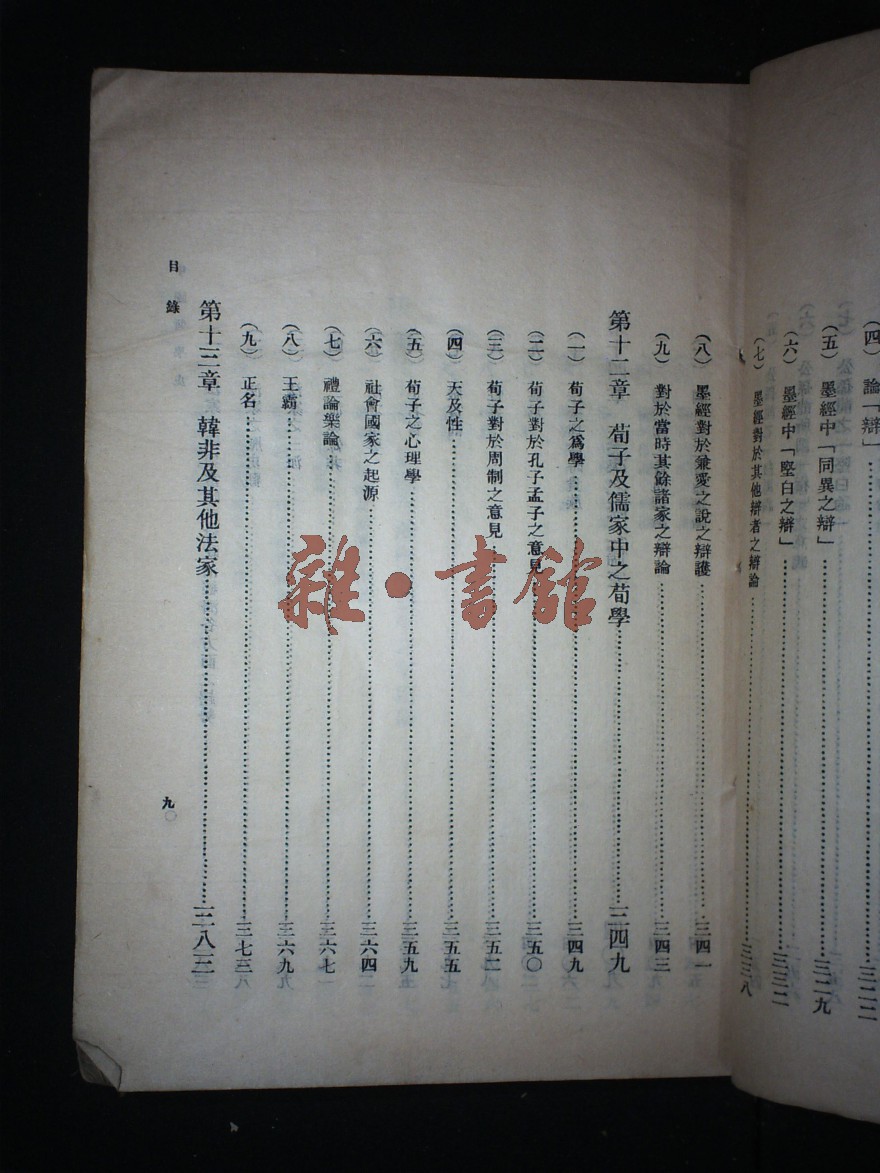 (四) 論「辯」……三二二
(五) 墨經中「同異之辯」……三二九
(六) 墨經中「堅白之辯」……三三二
(七) 墨經對於其他辯者之辯論……三三八
(八) 墨經對於兼愛之說之辯護……三四一
(九) 對於當時其餘諸家之辯論……三四三
第十二章 荀子及儒家中之荀學……三四九
(一) 荀子之爲學……三四九
(二) 荀子對於孔子孟子之意見……三五〇
(三) 荀子對於周制之意見……三五二
(四) 天及性……三五五
(五) 荀子之心理學……三五九
(六) 社會國家之起源……三六四
(七) 禮論樂論……三六七
(八) 王霸……三六九
(九) 正名……三七三
第十三章 韓非及其他法家……三八三
目錄
九
雜·書館